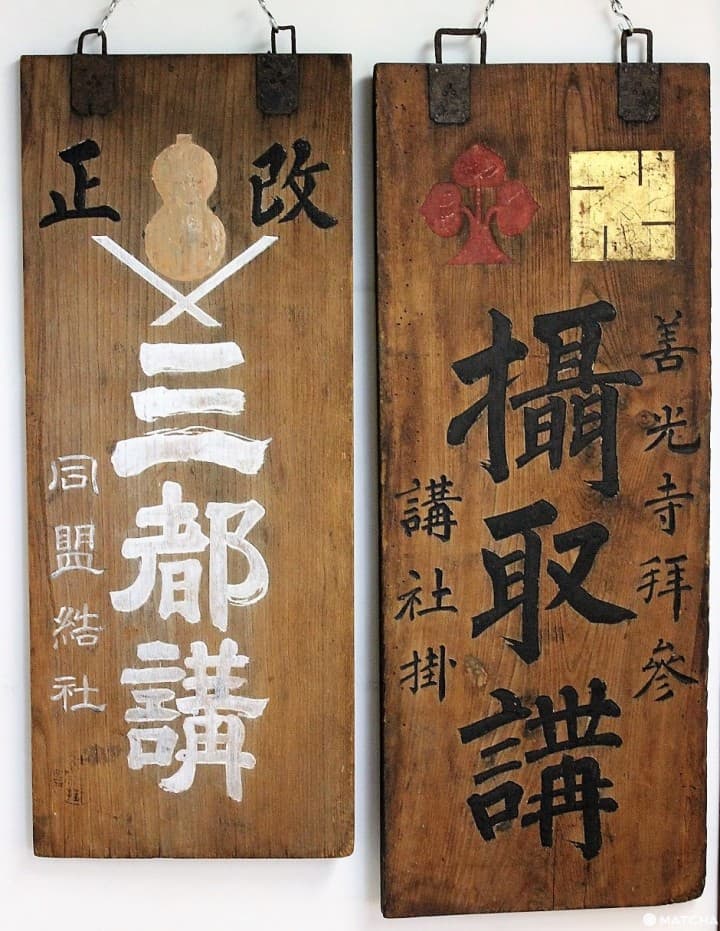 改正
三都講
同盟結社
善光寺拜參
攝取講
講社掛
MATCHA